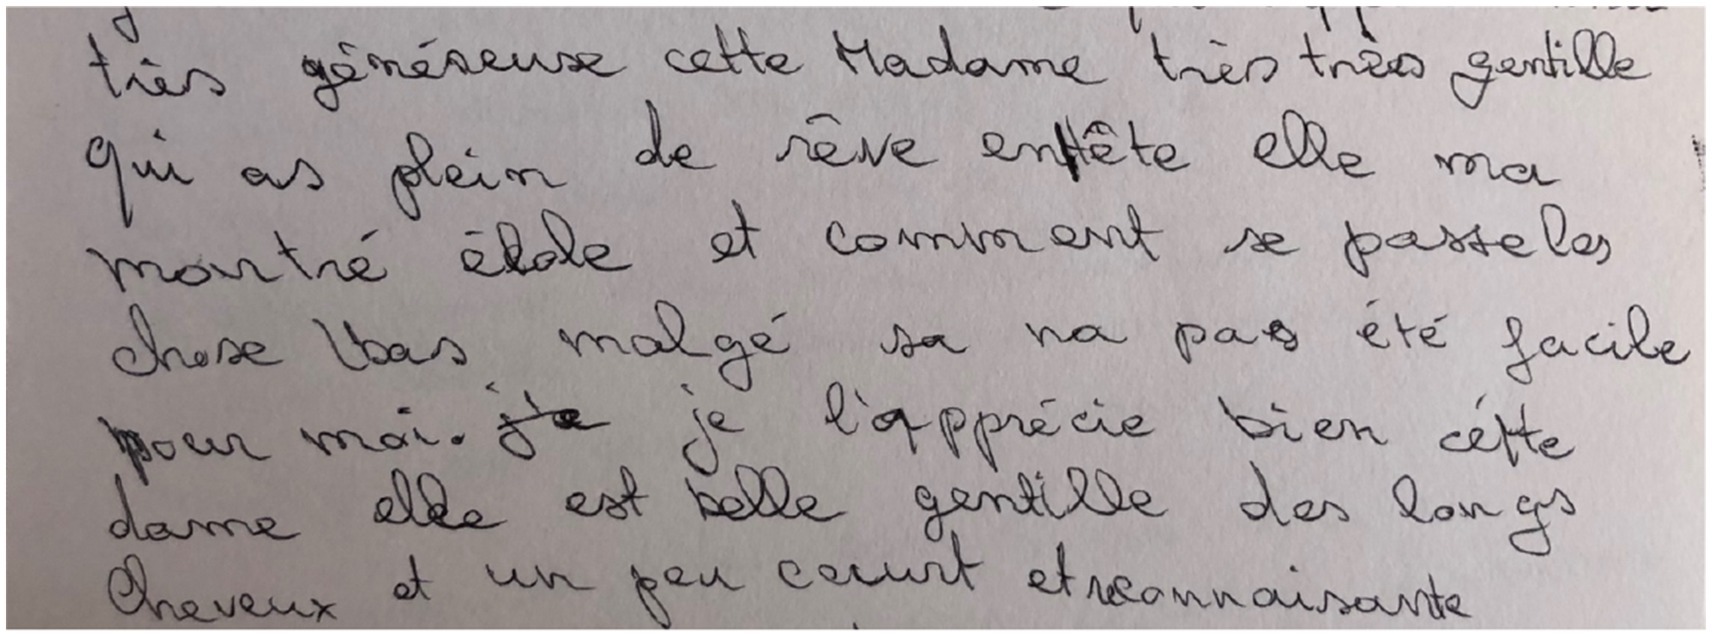 très généreuse cette Madame très très gentille
qui as plein de rêve entête elle ma
montré école et comment se passe les
chose lbas malgé sa na pas été facile
pour moi. je je l'apprécie bien cétte
dame elle est belle gentille des longs
cheveux et un peu court et reconnaisante